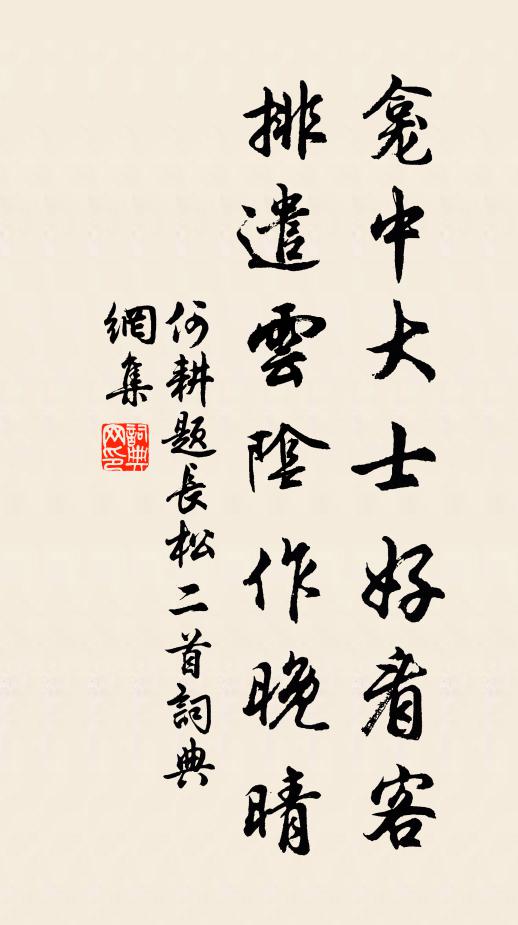 龕中大士好看客
排遣雲陰作晚晴
何耕題長松二首詞典
網集
詞典網印